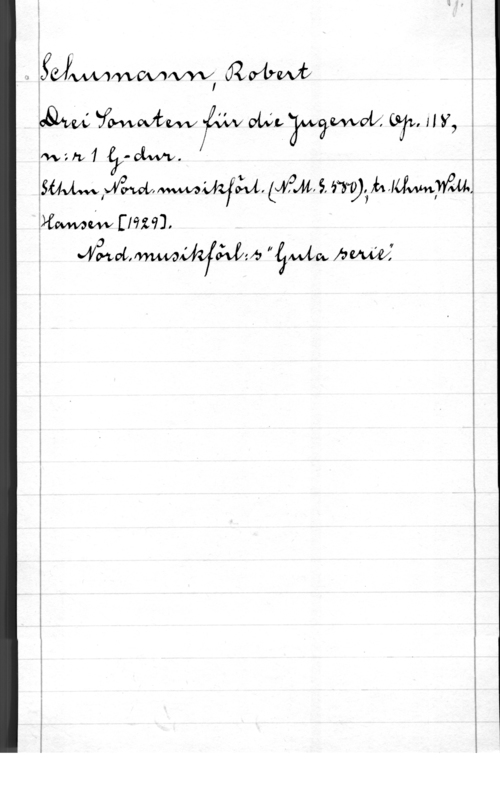 Schumann, Robert
Drei Sonaten für die Jugend. Op. 118,
n:r 1 G-dur.
Sthlm, Nord. musikförl. (N.M.S. 580), tr. Khvn, Wilh.
Hansen [1929].
Nord. musikförl:s "Gula serie".